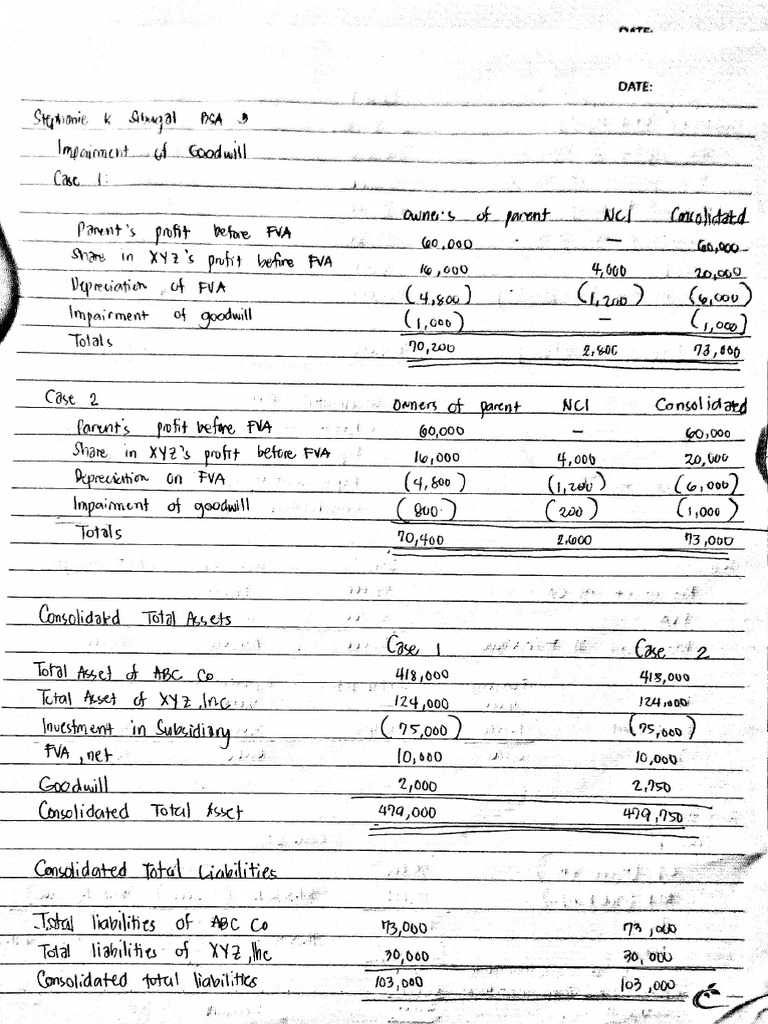 DATE:
DATE:
Stephanie K BSA 3
Impairment of Goodwill
Case 1:
Owners of parent NCI Consolidated
Parent's profit before FVA 60,000 — 60,000
Share in XYZ's profit before FVA 16,000 4,000 20,000
Depreciation of FVA (4,800) (1,200) (6,000)
Impairment of goodwill (1,000) — (1,000)
Totals 70,200 2,800 73,000
Case 2 Owners of parent NCI Consolidated
Parent's profit before FVA 60,000 — 60,000
Share in XYZ's profit before FVA 16,000 4,000 20,000
Depreciation on FVA (4,800) (1,200) (6,000)
Impairment of goodwill (800) (200) (1,000)
Totals 70,400 2,600 73,000
Consolidated Total Assets
Case 1 Case 2
Total Asset of ABC Co 418,000 418,000
Total Asset of XYZ, Inc 124,000 124,000
Investment in Subsidiary (75,000) (75,000)
FVA, net 10,000 10,000
Goodwill 2,000 2,750
Consolidated Total Asset 479,000 479,750
Consolidated Total Liabilities
Total liabilities of ABC Co 73,000 73,000
Total liabilities of XYZ, Inc 30,000 30,000
Consolidated total liabilities 103,000 103,000